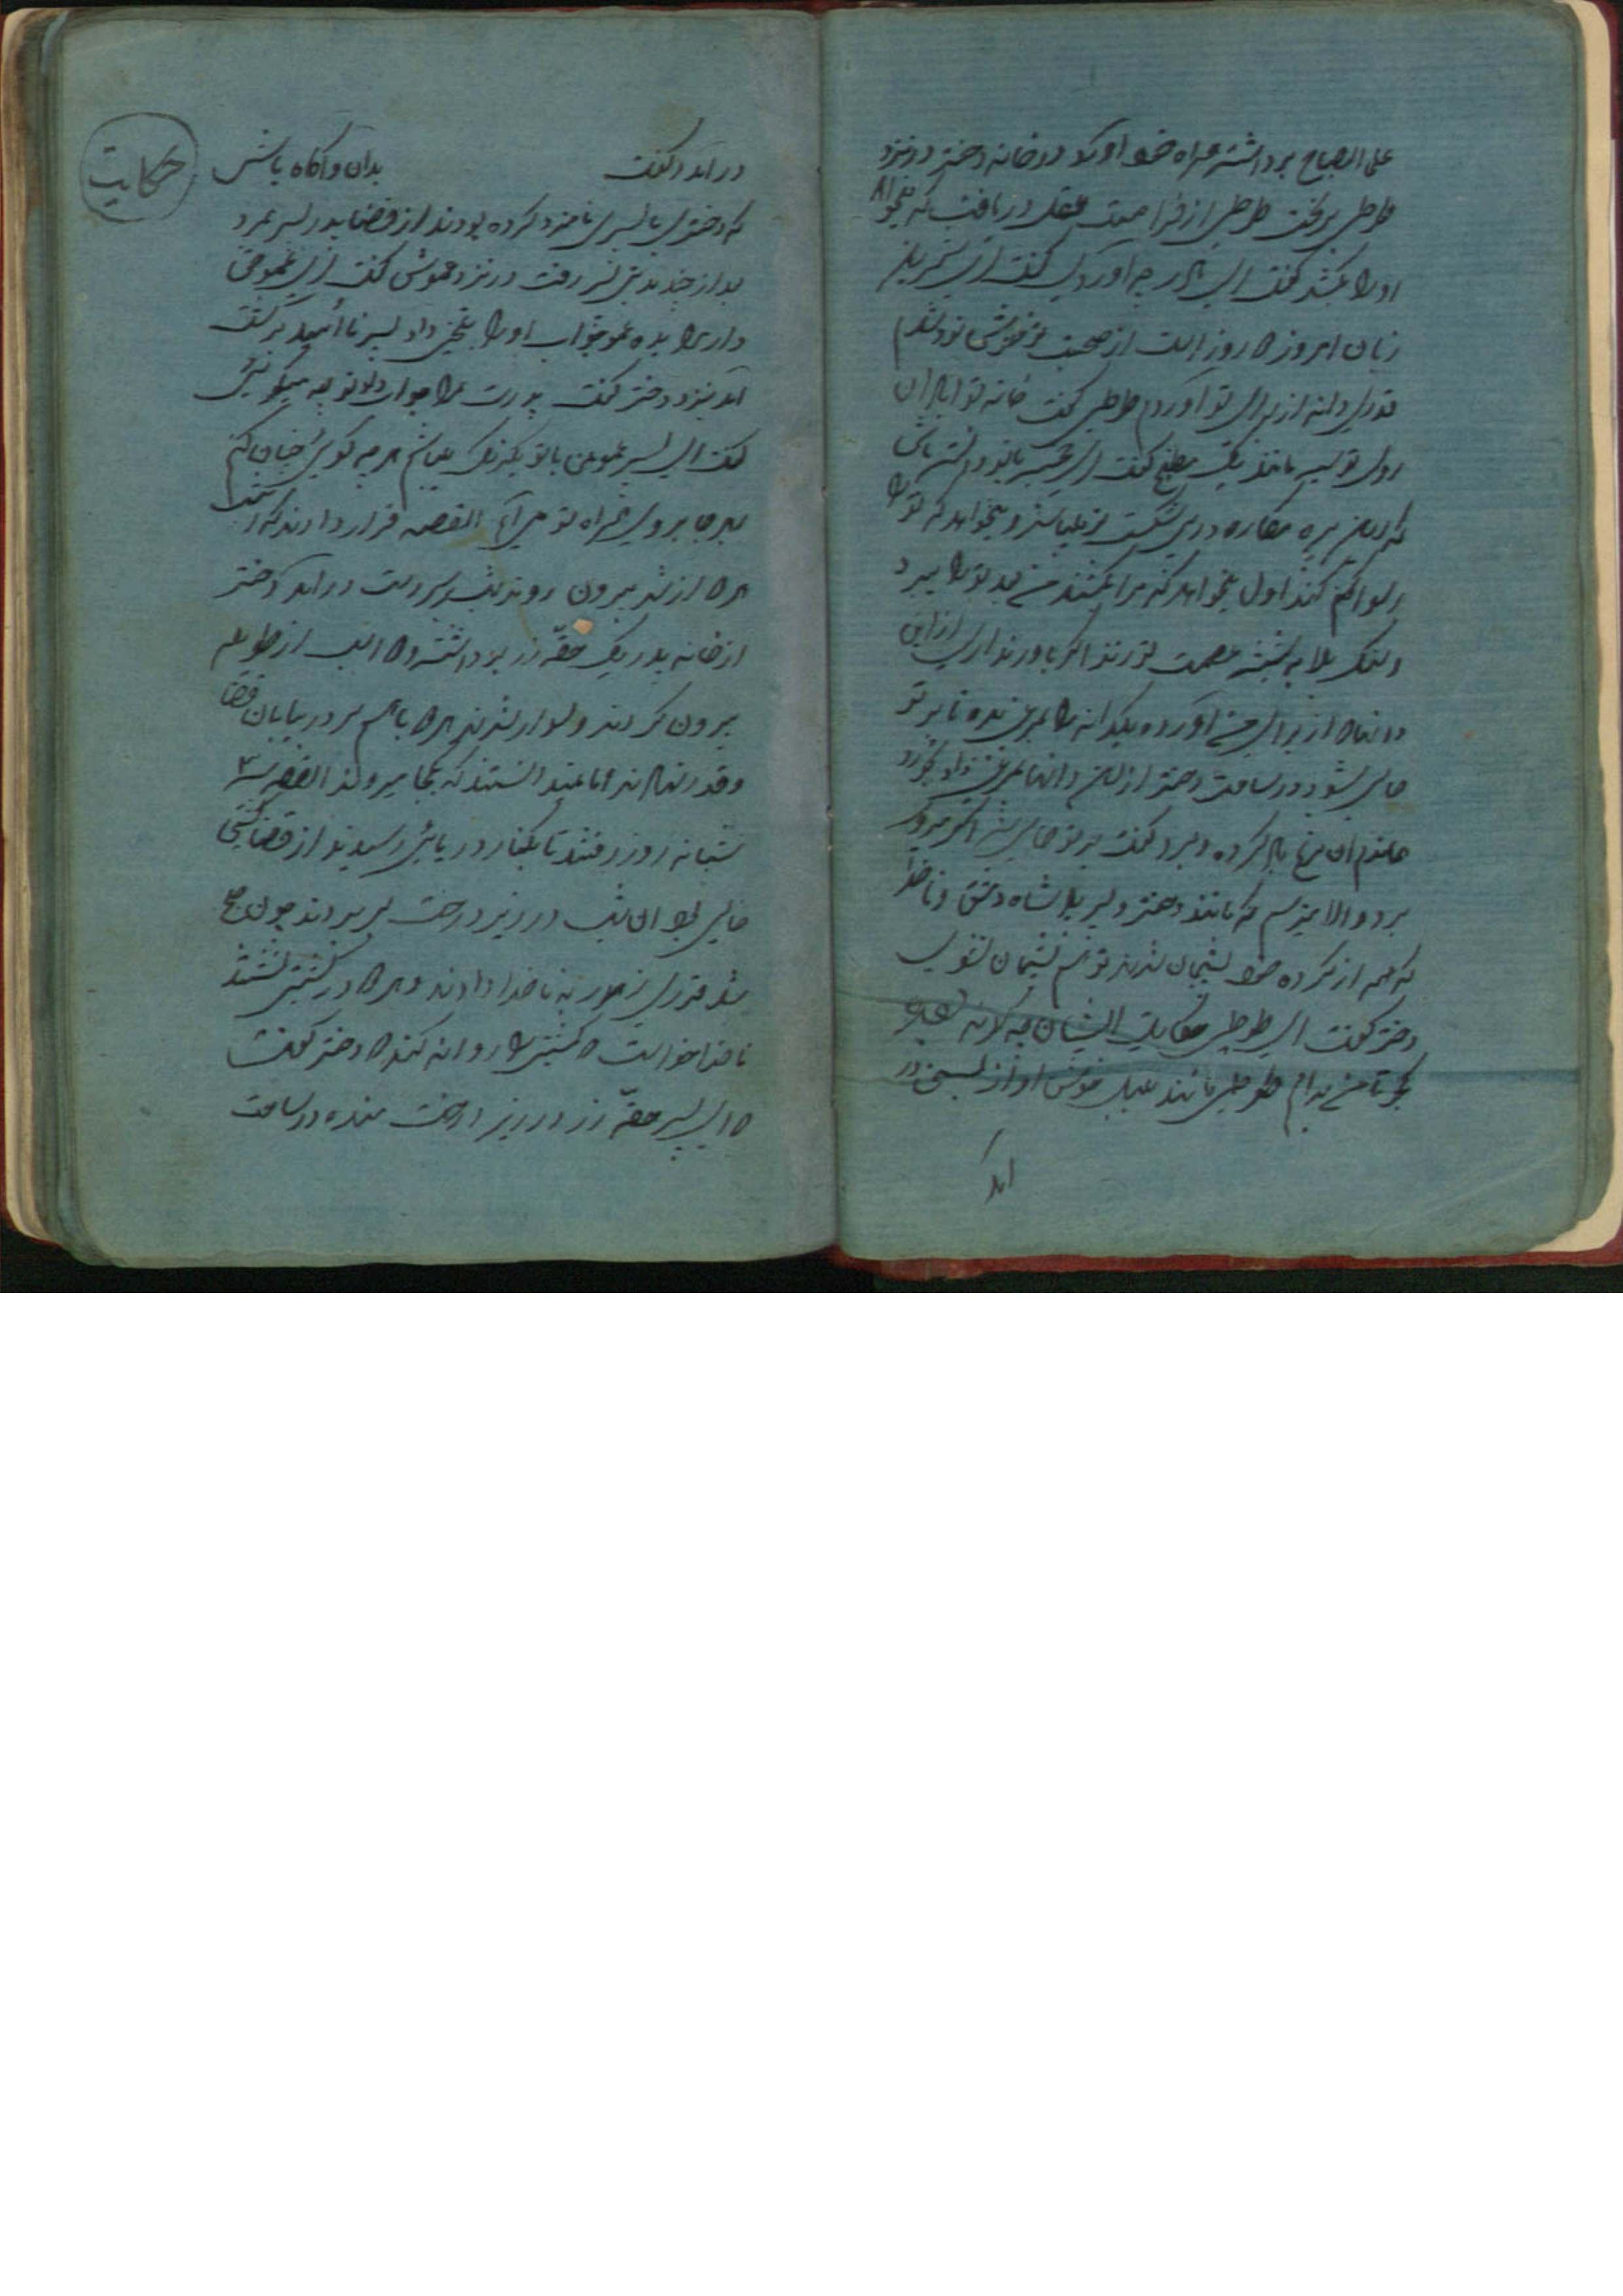 علی الصباح برداشته همراه خود آورد در خانه دختر در نزد
طوطی ریخت طوطی از فراصت عقل دریافت که میخواهد
او را بکشد گفت ای مادر چه آوردی گفت ای شیرین
زبان امروز روز است از صحبت تو خوش نود شدم
قدری دانه از برای تو آوردم طوطی گفت خانه تو آبادان
روی تو سیه مانند دیگ مطبخ گفت ای بانو دانسته باش
که این پیره مکاره در پی شکست تو میباشد و میخواهد که تو را
رسوا کند اول میخواهد که مرا بکشد من بعد تو را ببرد
و سنگ بلا به شیشه عصمت تو زند اگر باور نداری از این
دانها از برای من آورده یکدانه را بمرغی بده تا بر تو
حالی شود در ساعت دختر از آن دانها بمرغی داد بخورد
هماندم آن مرغ باد کرده و مرد گفت بر تو حالی شد اگر میروی
برو والا میترسم که مانند دختر وزیر پادشاه دمشق و ناخدا
که همه از کرده خود پشیمان شدند تو هم پشیمان نشوی
دختر گفت ای طوطی حکایت ایشان چه گونه بود
بگو تا من بدانم طوطی مانند بلبل خوش آواز بسخن در
آمد
در آمد و گفت بدان و آگاه باش
حکایت
که دختری با پسری نامزد کرده بودند از قضا پدر پسر بمرد
بعد از چند مدتی پسر رفت در نزد عموش گفت ای عمو
داری مرا بده عمو جواب او را بتلخی داد پسر نا امید برگشت
آمد بنزد دختر گفت پدرت مرا جواب داد تو چه میگوئی
گفت ای پسر عمو من با تو یکرنگ میباشم هر چه گوئی چنان کنم
بهر جا بروی همراه تو می آیم القصه قرار دادند که
از شهر بیرون روند شب بر سر دست درآمد دختر
از خانه پدر یک حقه زر برداشته اسب از طویله
بیرون کردند و سوار شدند با هم سر در بیابان قضا
و قدر نهادند اما نمیدانستند که بکجا میروند القصه سه
شبانه روز رفتند تا بکنار دریائی رسیدند از قضا کشتی
خالی بود آن شب در زیر درخت بسر بردند چون صبح
شد قدری زر به ناخدا دادند و در کشتی نشستند
ناخدا خواست کشتی را روانه کند دختر گفت
ای پسر حقه زر در زیر درخت مانده در ساعت